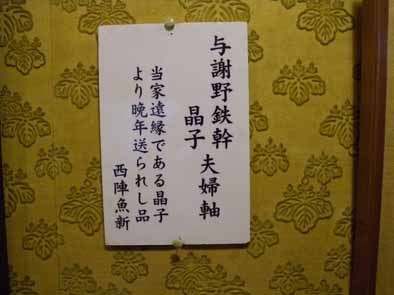 与謝野鉄幹
晶子 夫婦軸
当家遠縁である晶子
より晩年送られし品
西陣魚新